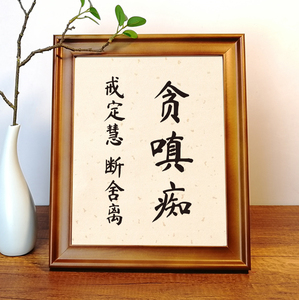 贪嗔痴
戒定慧 断舍离